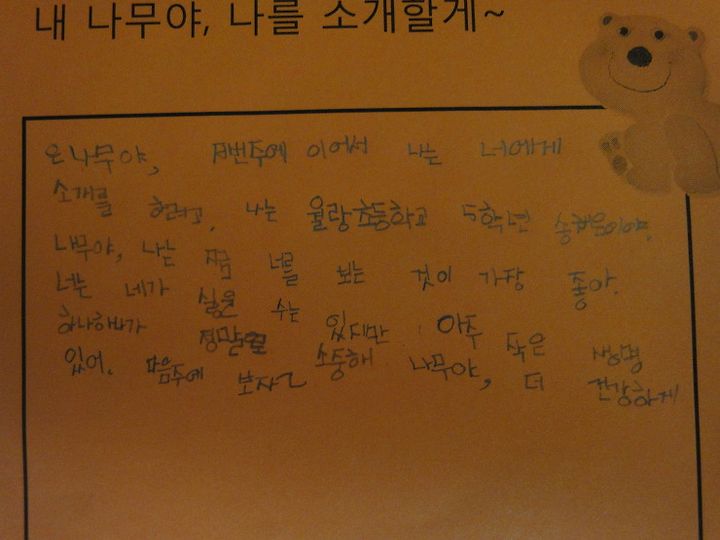 내 나무야, 나를 소개할게~
은나무야, 저번주에 이어서 나는 너에게
소개를 하려고, 나는 월랑초등학교 5학년
나무야, 나는 너를 보는 것이 가장 좋아.
너는 네가 싫을 수는 있지만 아주 작은 생명
하나하나가 정말로 소중해 나무야, 더 건강하게
있어. 다음주에 보자~